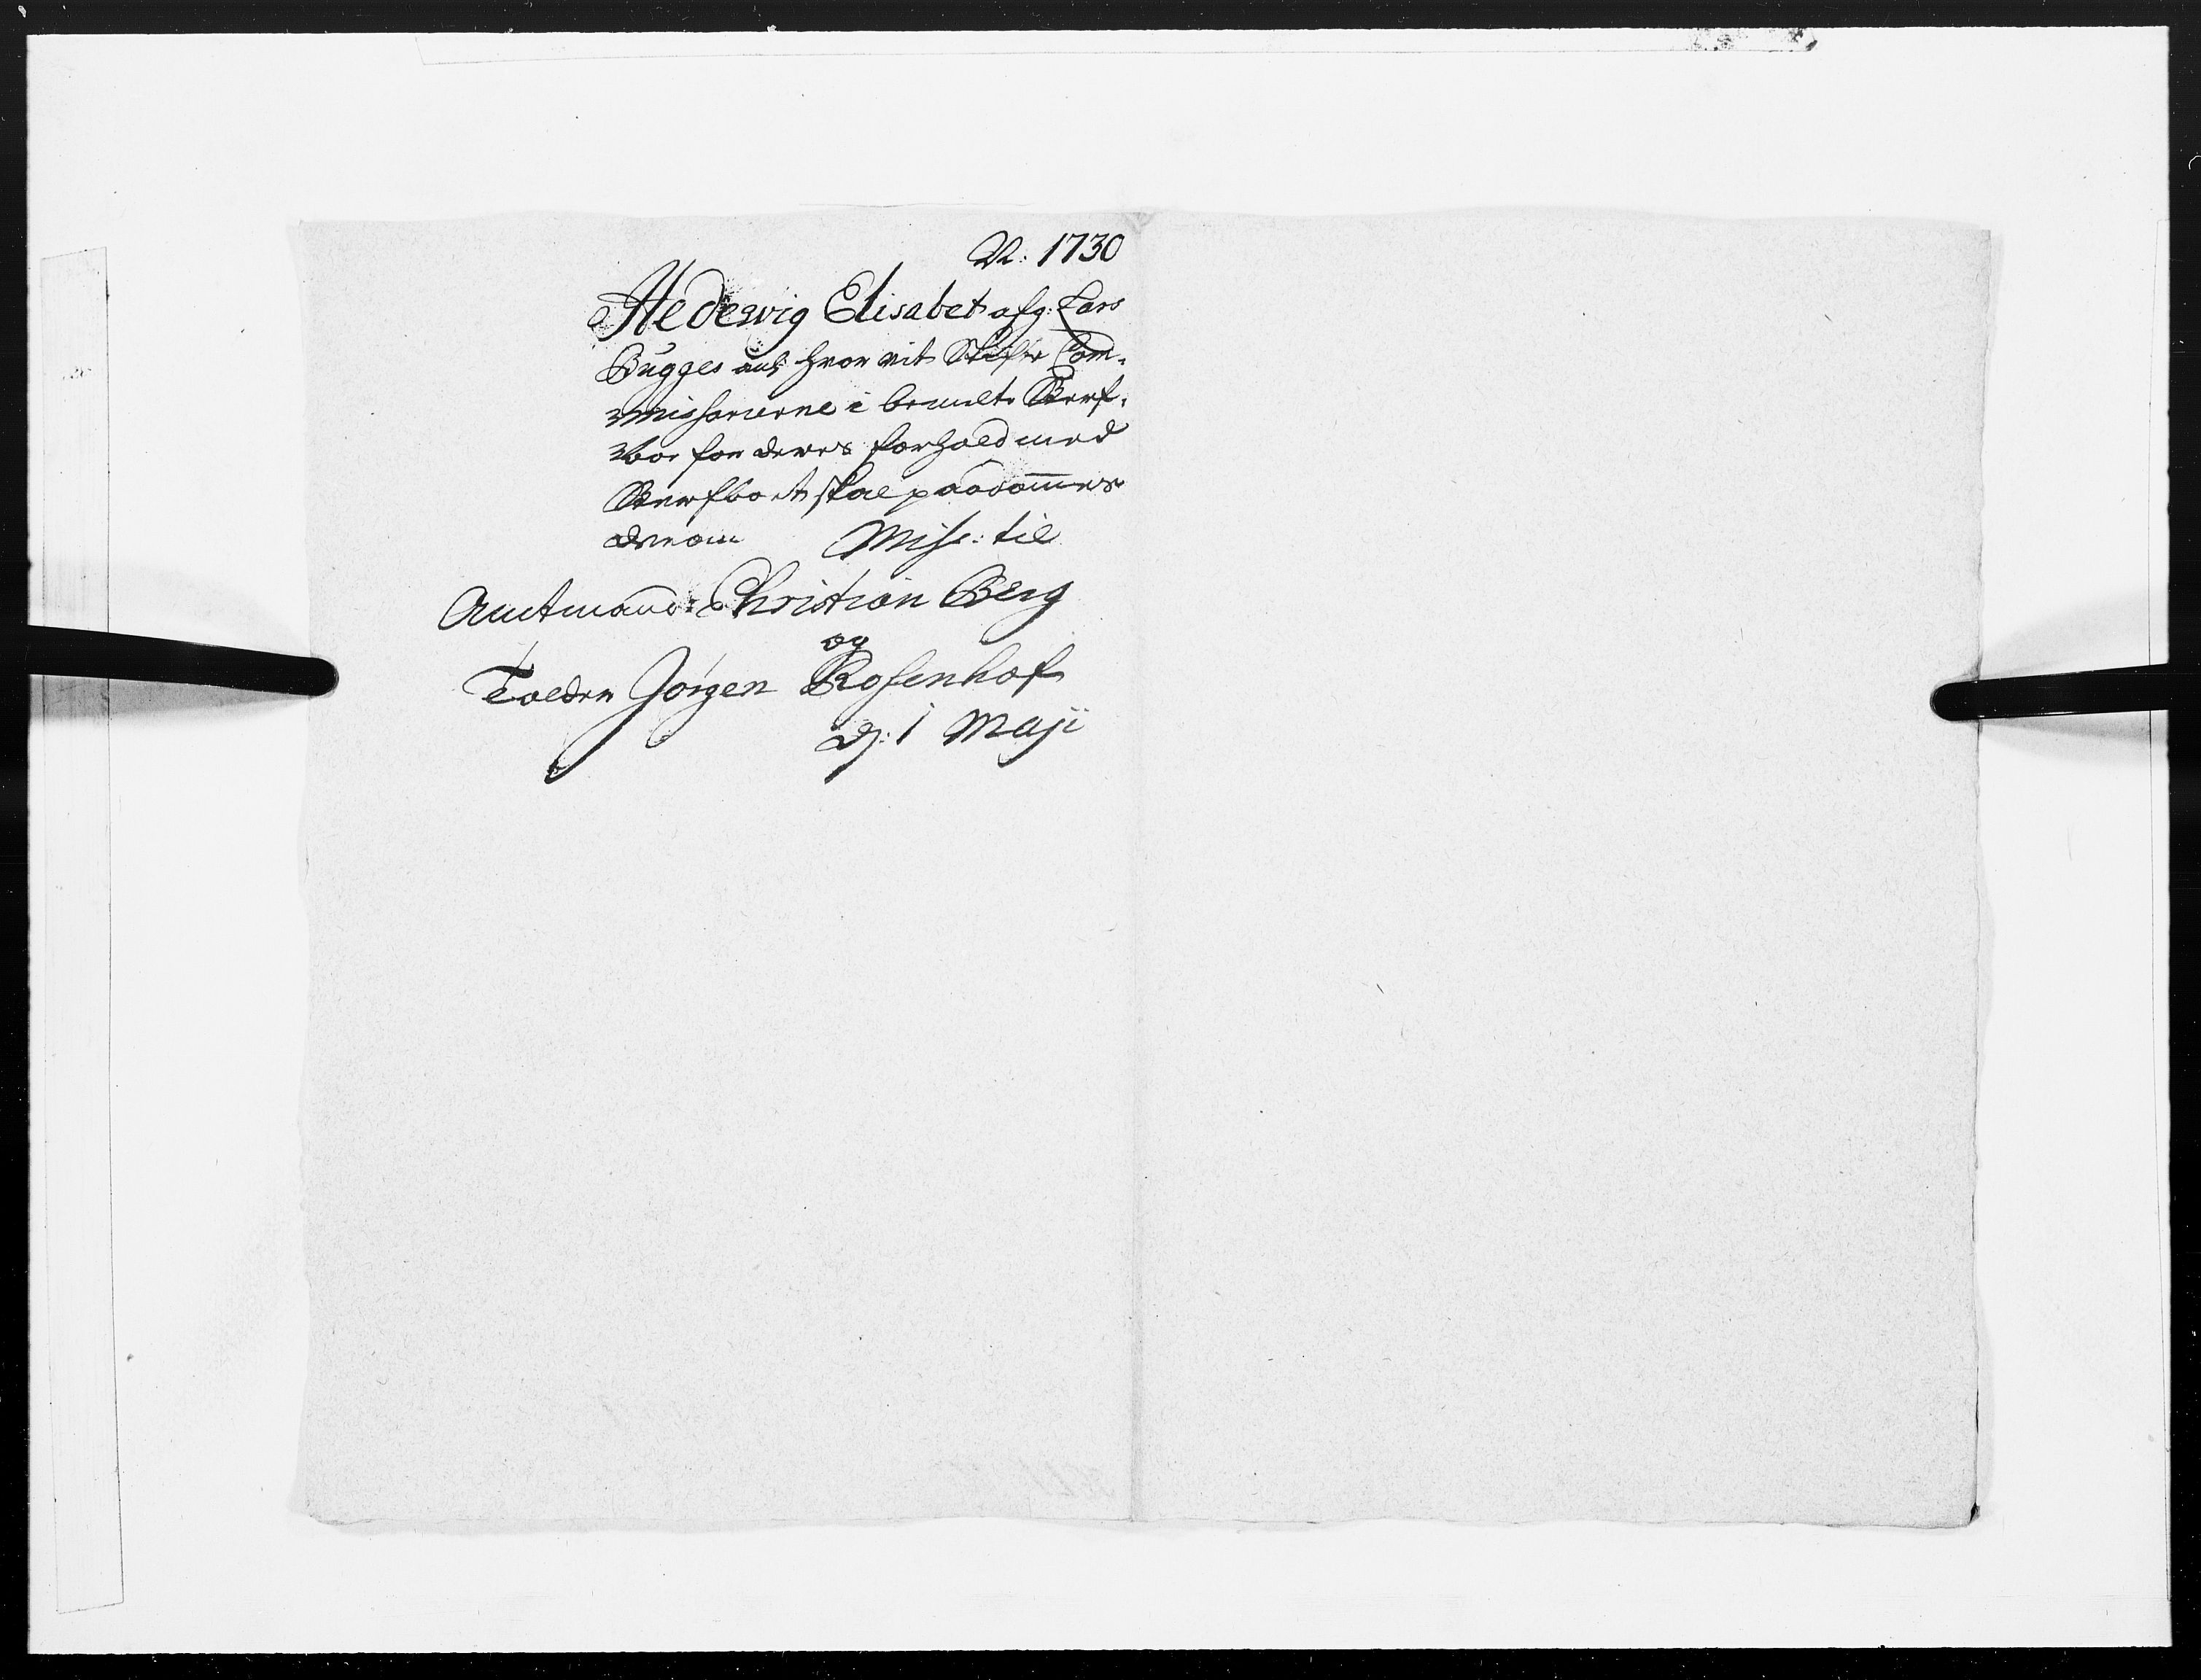 No: 1730
Hedewig Elisabet afg: Lars
Bugges ang: hvor vit Skifte Com¬
missarierne i bemelte Sterf¬
boe for deres forhold med
Sterfboet skal paadømmes
dreom Miss: til
Amtmand Christian Berg
og
Tolder Jørgen Rosenhof
d: 1 Maji